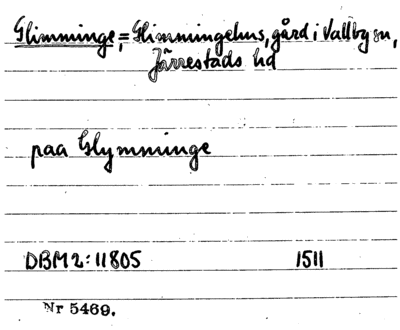 Glimminge, = Glimmingehus, gård i Vallby sn,
Järrestads hd
paa Glymminge
DBM 2: 11805 1511
Nr 5469.